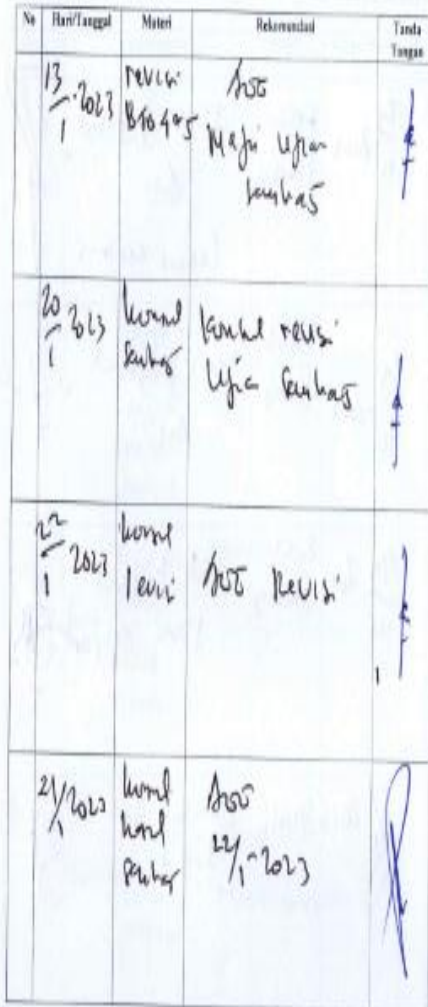 No Hari/Tanggal Materi Rekomendasi Tanda Tangan
13/1-2023
revisi
Acc
Maju ujian
semhas
20/1 2023
konsul
semhas
konsul revisi
Ujian semhas
22/1 2023
konsul
revisi
Acc Revisi
21/1 2023
konsul
hasil
semhas
Acc
22/1-2023